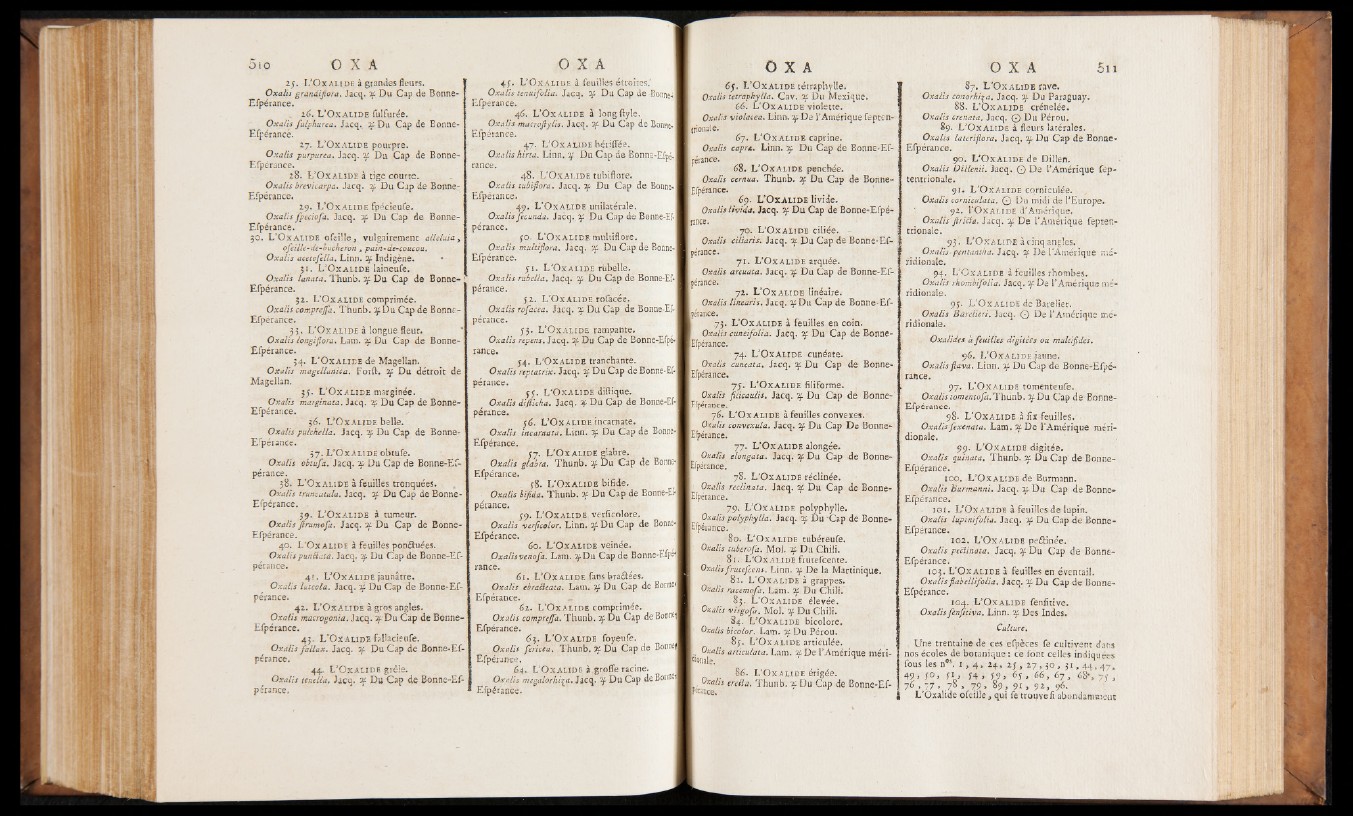 510 OXA
25. L'OXALIDE à grandes fleurs.
Oxalis grandiflora. Jacq. ♃ Du Cap de Bonne-
Eſpérance.
26. L'OXALIDE ſulfurée.
Oxalis ſulphurea. Jacq. ♃ Du Cap de Bonne-
Eſpérance.
27. L'OXALIDE pourpre.
Oxalis purpurea. Jacq. ♃ Du Cap de Bonne-
Eſpérance.
28. L'OXALIDE à tige courte.
Oxalis brevicarpa. Jacq. ♃ Du Cap de Bonne-
Eſpérance.
29. L'OXALIDE ſpécieuſe.
Oxalis ſpecioſa. Jacq. ♃ Du Cap de Bonne-
Eſpérance.
30. L'OXALIDE oſeille, vulgairement alleluia,
oſeille-de-bucheron, pain-de-coucou.
Oxalis acetoſella. Linn. ♃ Indigène.
31. L'OXALIDE laineuſe.
Oxalis lanata. Thunb. ♃ Du Cap de Bonne-
Eſpérance.
32. L'OXALIDE comprimée.
Oxalis compreſſa. Thunb. ♃ Du Cap de Bonne-
Eſpérance.
33. L'OXALIDE à longue fleur.
Oxalis longiflora. Lam. ♃ Du Cap de Bonne-
Eſpérance.
34. L'OXALIDE de Magellan.
Oxalis magellanica. Forſt. ♃ Du détroit de
Magellan.
35. L'OXALIDE marginée.
Oxalis marginata. Jacq. ♃ Du Cap de Bonne-
Eſpérance.
36. L'OXALIDE belle.
Oxalis pulchella. Jacq. ♃ Du Cap de Bonne-
Eſpérance.
37. L'OXALIDE obtuſe.
Oxalis obtuſa. Jacq. ♃ Du Cap de Bonne-Eſ-
pérance.
38. L'OXALIDE à feuilles tronquées.
Oxalis truncatula. Jacq. ♃ Du Cap de Bonne-
Eſpérance.
39. L'OXALIDE à tumeur.
Oxalis ſtrumoſa. Jacq. ♃ Du Cap de Bonne-
Eſpérance.
40. L'OXALIDE à feuilles ponctuées.
Oxalis punctata. Jacq. ♃ Du Cap de Bonne-Eſ-
pérance.
41. L'OXALIDE jaunâtre.
Oxalis luteola. Jacq. ♃ Du Cap de Bonne-Eſ-
pérance.
42. L'OXALIDE à gros angles.
Oxalis macrogonia. Jacq. ♃ Du Cap de Bonne-
Eſpérance.
43. L'OXALIDE fallacieuſe.
Oxalis fallax. Jacq. ♃ Du Cap de Bonne-Eſ-
pérance.
44. L'OXALIDE grêle.
Oxalis tenella. Jacq. ♃ Du Cap de Bonne-Eſ-
pérance.
OXA
45. L'OXALIDE à feuilles étroites.
Oxalis tenuifolia. Jacq. ♃ Du Cap de Bonne-
Eſpérance.
46. L'OXALIDE à long ſtyle.
Oxalis macroſtylis. Jacq. ♃ Du Cap de Bonne-
Eſpérance.
47. L'OXALIDE hériſſée.
Oxalis hirta. Linn. ♃ Du Cap de Bonne-Eſpé-
rance.
48. L'OXALIDE tubiflore.
Oxalis tubiflora. Jacq. ♃ Du Cap de Bonne-
Eſpérance.
49. L'OXALIDE unilatérale.
Oxalis ſecunda. Jacq. ♃ Du Cap de Bonne-Eſ-
pérance.
50. L'OXALIDE multiflore.
Oxalis multiflora. Jacq. ♃ Du Cap de Bonne-
Eſpérance.
51. L'OXALIDE rubelle.
Oxalis rubella. Jacq. ♃ Du Cap de Bonne-Eſ-
pérance.
52. L'OXALIDE roſacée.
Oxalis roſacea. Jacq. ♃ Du Cap de Bonne-Eſ-
pérance.
53. L'OXALIDE rampante.
Oxalis repens. Jacq. ♃ Du Cap de Bonne-Eſpé-
rance.
54. L'OXALIDE tranchante.
Oxalis reptatrix. Jacq. ♃ Du Cap de Bonne-Eſ-
pérance.
55. L'OXALIDE diſtique.
Oxalis diſticha. Jacq. ♃ Du Cap de Bonne-Eſ-
pérance.
56. L'OXALIDE incarnate.
Oxalis incarnata. Linn. ♃ Du Cap de Bonne-
Eſpérance.
57. L'OXALIDE glabre.
Oxalis glabra. Thunb. ♃ Du Cap de Bonne-
Eſpérance.
58. L'OXALIDE bifide.
Oxalis bifida. Thunb. ♃ Du Cap de Bonne-Eſ-
pérance.
59. L'OXALIDE verſicolore.
Oxalis verſicolor. Linn. ♃ Du Cap de Bonne-
Eſpérance.
60. L'OXALIDE veinée.
Oxalis venoſa. Lam. ♃ Du Cap de Bonne-Eſpé-
rance.
61. L'OXALIDE ſans bractées.
Oxalis ebracteata. Lam. ♃ Du Cap de Bonne-
Eſpérance.
62. L'OXALIDE comprimée.
Oxalis compreſſa. Thunb. ♃ Du Cap de Bonne-
Eſpérance.
63. L'OXALIDE ſoyeuſe.
Oxalis ſericea. Thunb. ♃ Du Cap de Bonne-
Eſpérance.
64. L'OXALIDE à groſſe racine.
Oxalis megalorhiza. Jacq. ♃ Du Cap de Bonne-
Eſpérance.
OXA
65. L'OXALIDE tétraphylle.
Oxalis tetraphylla. Cav. ♃ Du Mexique.
66. L'OXALIDE violette.
Oxalis violacea. Linn. ♃ De l'Amérique ſepten-
trionale.
67. L'OXALIDE caprine.
Oxalis capræ. Linn. ♃ Du Cap de Bonne-Eſ-
pérance.
68. L'OXALIDE penchée.
Oxalis cernua. Thunb. ♃ Du Cap de Bonne-
Eſpérance.
69. L'OXALIDE livide.
Oxalis livida. Jacq. ♃ Du Cap de Bonne-Eſpé-
rance.
70. L'OXALIDE ciliée.
Oxalis ciliaris. Jacq. ♃ Du Cap de Bonne-Eſ-
pérance.
71. L'OXALIDE arquée.
Oxalis arcuata. Jacq. ♃ Du Cap de Bonne-Eſ-
pérance.
72. L'OXALIDE linéaire.
Oxalis linearis. Jacq. ♃ Du Cap de Bonne-Eſ-
pérance.
73. L'OXALIDE à feuilles en coin.
Oxalis cuneifolia. Jacq. ♃ Du Cap de Bonne-
Eſpérance.
74. L'OXALIDE cunéate.
Oxalis cuneata. Jacq. ♃ Du Cap de Bonne-
Eſpérance.
75. L'OXALIDE filiforme.
Oxalis filicaulis. Jacq. ♃ Du Cap de Bonne-
Eſpérance.
76. L'OXALIDE à feuilles convexes.
Oxalis convexula. Jacq. ♃ Du Cap De Bonne-
Eſpérance.
77. L'OXALIDE alongée.
Oxalis elongata. Jacq. ♃ Du Cap de Bonne-
Eſpérance.
78. L'OXALIDE réclinée.
Oxalis reclinata. Jacq. ♃ Du Cap de Bonne-
Eſpérance.
79. L'OXALIDE polyphylle.
Oxalis polyphylla. Jacq. ♃ Du Cap de Bonne-
Eſpérance.
80. L'OXALIDE tubéreuſe.
Oxalis tuberoſa. Mol. ♃ Du Chili.
81. L'OXALIDE fruteſcente.
Oxalis fruteſcens. Linn. ♃ De la Martinique.
82. L'OXALIDE à grappes.
Oxalis racemoſa. Lam. ♃ Du Chili.
83. L'OXALIDE élevée.
Oxalis virgoſa. Mol. ♃ Du Chili.
84. L'OXALIDE bicolore.
Oxalis bicolor. Lam. ♃ Du Pérou.
85. L'OXALIDE articulée.
Oxalis articulata. Lam. ♃ De l'Amérique méri-
dionale.
86. L'OXALIDE érigée.
Oxalis erecta. Thunb. ♃ Du Cap de Bonne-Eſ-
pérance.
OXA 511
87. L'OXALIDE rave.
Oxalis conorhiza. Jacq. ♃ Du Paraguay.
88. L'OXALIDE crénelée.
Oxalis crenata. Jacq. ⊙ Du Pérou.
89. L'OXALIDE à fleurs latérales.
Oxalis lateriflora. Jacq. ♃ Du Cap de Bonne-
Eſpérance.
90. L'OXALIDE de Dillen.
Oxalis Dillenii. Jacq. ⊙ De l'Amérique ſep-
tentrionale.
91. L'OXALIDE corniculée.
Oxalis corniculata. ⊙ Du midi de l'Europe.
92. L'OXALIDE d'Amérique.
Oxalis ſtricta. Jacq. ♃ De l'Amérique ſepten-
trionale.
93. L'OXALIDE à cinq angles.
Oxalis pentantha. Jacq. ♃ De l'Amérique mé-
ridionale.
94. L'OXALIDE à feuilles rhombes.
Oxalis rhombifolia. Jacq. ♃ De l'Amérique mé-
ridionale.
95. L'OXALIDE de Barelier.
Oxalis Barelieri. Jacq. ⊙ De l'Amérique mé-
ridionale.
Oxalides à feuilles digitées ou multifides.
96. L'OXALIDE jaune.
Oxalis flava. Linn. ♃ Du Cap de Bonne-Eſpé-
rance.
97. L'OXALIDE tomenteuſe.
Oxalis tomentoſa. Thunb. ♃ Du Cap de Bonne-
Eſpérance.
98. L'OXALIDE à ſix feuilles.
Oxalis ſexenata. Lam. ♃ De l'Amérique méri-
dionale.
99. L'OXALIDE digitée.
Oxalis quinata. Thunb. ♃ Du Cap de Bonne-
Eſpérance.
100. L'OXALIDE de Burmann.
Oxalis Burmanni. Jacq. ♃ Du Cap de Bonne-
Eſpérance.
101. L'OXALIDE à feuilles de lupin.
Oxalis lupinifolia. Jacq. ♃ Du Cap de Bonne-
Eſpérance.
102. L'OXALIDE pectinée.
Oxalis pectinata. Jacq. ♃ Du Cap de Bonne-
Eſpérance.
103. L'OXALIDE à feuilles en éventail.
Oxalis flabellifolia. Jacq. ♃ Du Cap de Bonne-
Eſpérance.
104. L'OXALIDE ſenſitive.
Oxalis ſenſitiva. Linn. ♃ Des Indes.
Culture.
Une trentaine de ces eſpèces ſe cultivent dans
nos écoles de botanique: ce ſont celles indiquées
ſous les nos. 1, 4, 24, 25, 27, 30, 31, 44, 47,
49, 50, 51, 54, 59, 65, 66, 67, 68, 75,
76, 77, 78, 79, 89, 91, 92, 96.
L'Oxalide oſeille, qui ſe trouve ſi abondamment